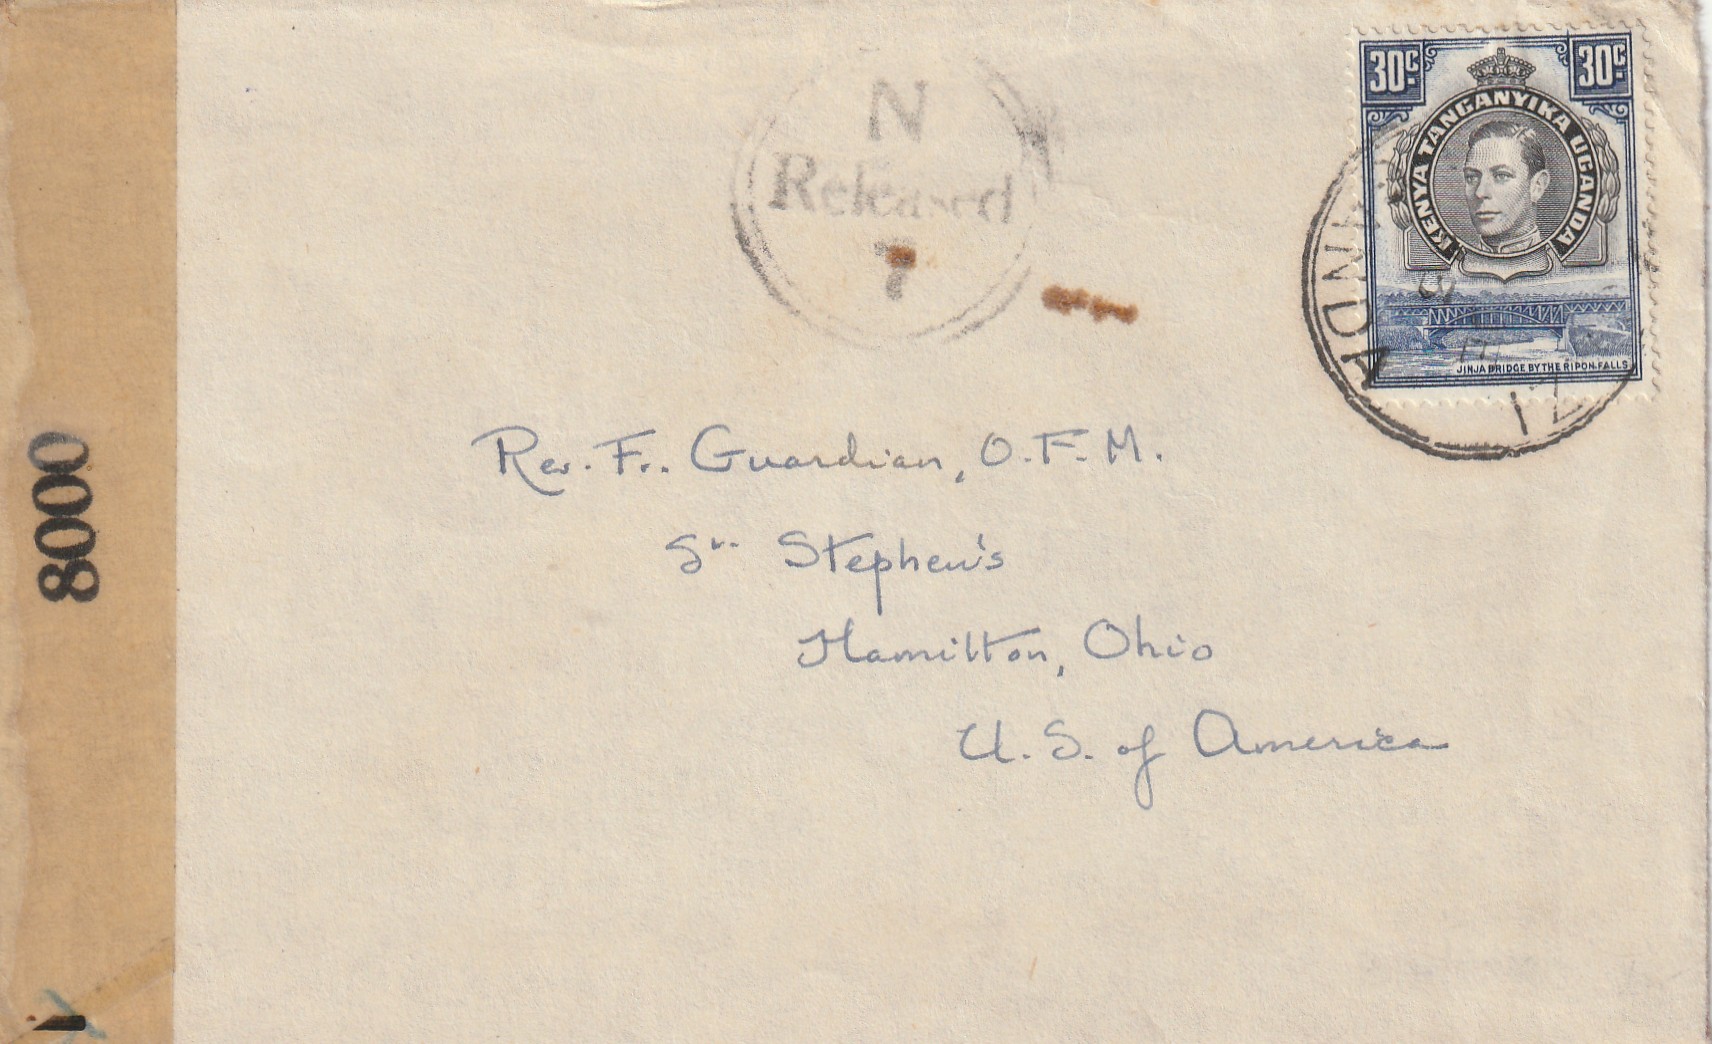 N
Released
7
30c 30c
KENYA TANGANYIKA UGANDA
JINJA BRIDGE BY THE RIPON FALLS
Rev. Fr. Guardian, O.F.M.
St. Stephen's
Hamilton, Ohio
U.S. of America
8000